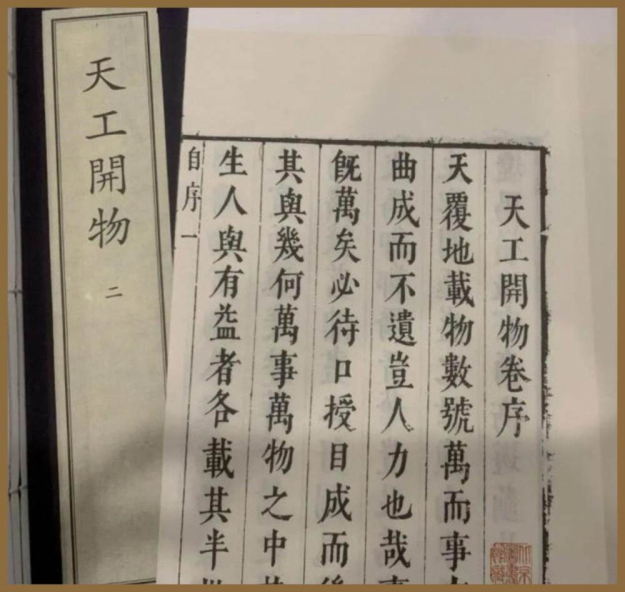 天工開物卷序
天覆地載物數號萬而事
曲成而不遺豈人力也哉事
旣萬矣必待口授目成而後
其與幾何萬事萬物之中
生人與有益者各載其半
自序一
天工開物
二